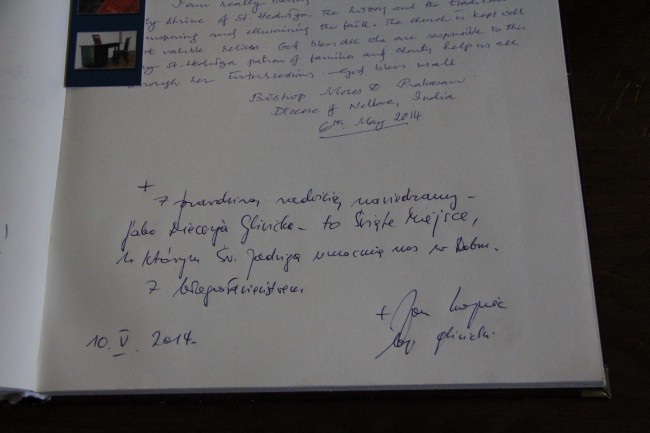 I am really
ly Shrine of St. Hedwiga. The history and the tradition
and illumining the faith. The church is kept well
valuable relics. God bless all who are responsible to this
St. Hedwiga patron of families and charity help us all
through her intercessions - God bless us all
Bishop Moses D Prakasam
Diocese of Nellore, India
6th May 2014
+
Z prawdziwą radością nawiedzamy -
jako Diecezja Gliwicka - to Święte Miejsce,
w którym Św. Jadwiga umacnia nas w Dobru.
Z błogosławieństwem
+ Jan Kopiec
bp gliwicki
10. V. 2014.